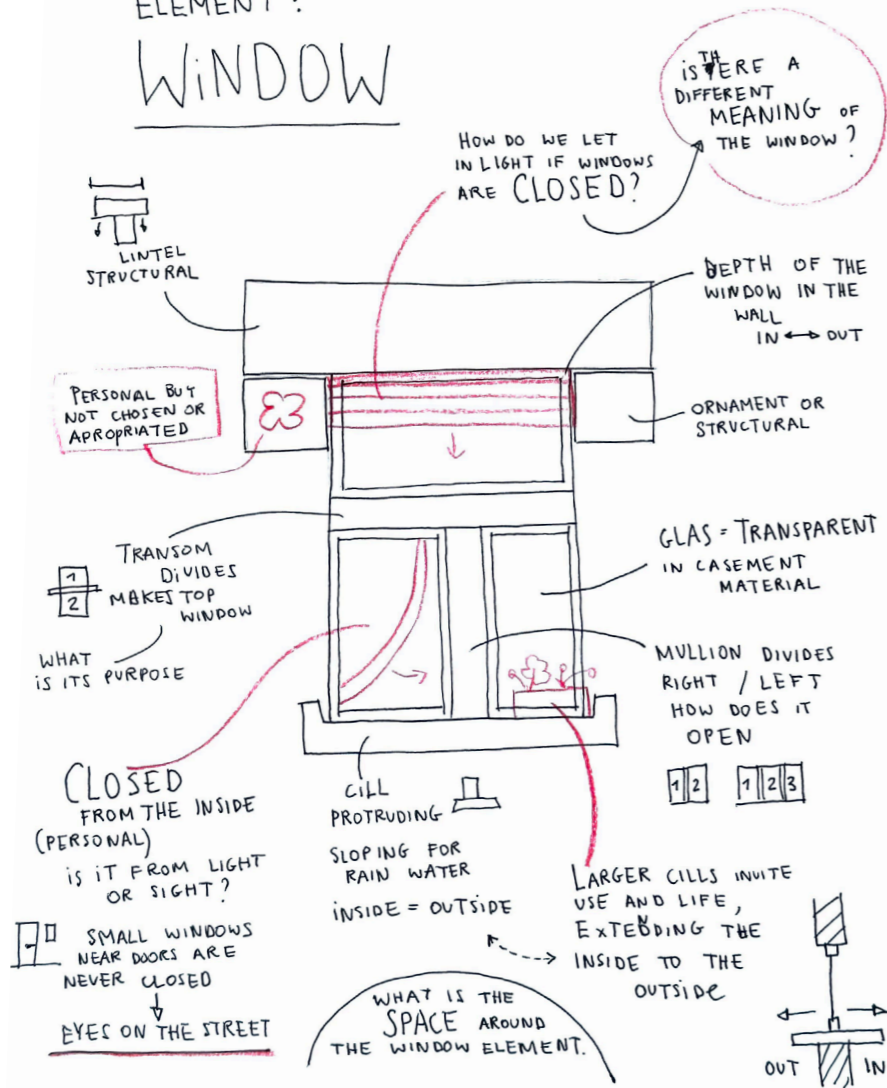 ELEMENT?
WINDOW
IS THERE A
DIFFERENT
MEANING OF
THE WINDOW?
HOW DO WE LET
IN LIGHT IF WINDOWS
ARE CLOSED?
LINTEL
STRUCTURAL
DEPTH OF THE
WINDOW IN THE
WALL
IN ↔ OUT
PERSONAL BUT
NOT CHOSEN OR
APROPRIATED
ORNAMENT OR
STRUCTURAL
TRANSOM
DIVIDES
MAKES TOP
WINDOW
1
2
WHAT
IS ITS PURPOSE
GLAS = TRANSPARENT
IN CASEMENT
MATERIAL
MULLION DIVIDES
RIGHT / LEFT
HOW DOES IT
OPEN
1 2
1 2 3
CLOSED
FROM THE INSIDE
(PERSONAL)
IS IT FROM LIGHT
OR SIGHT?
SMALL WINDOWS
NEAR DOORS ARE
NEVER CLOSED
EYES ON THE STREET
CILL
PROTRUDING
SLOPING FOR
RAIN WATER
INSIDE = OUTSIDE
LARGER CILLS INVITE
USE AND LIFE,
EXTENDING THE
INSIDE TO THE
OUTSIDE
WHAT IS THE
SPACE AROUND
THE WINDOW ELEMENT.
OUT IN